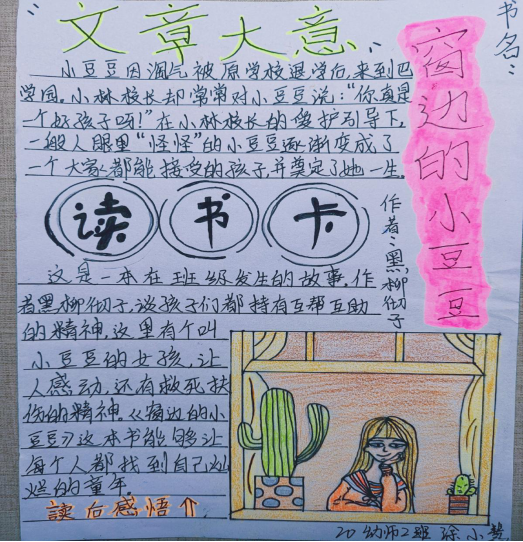 "文章大意"
小豆豆因淘气被原学校退学后,来到巴
学园。小林校长却常常对小豆豆说:"你真是
一个好孩子呀!"在小林校长的爱护引导下,
一般人眼里"怪怪"的小豆豆逐渐变成了
一个大家都能接受的孩子,并奠定了她一生。
书名:
窗边的小豆豆
作者:黑柳彻子
读书卡
这是一本在班级发生的故事,作
者黑柳彻子,谈孩子们都持有互帮互助
的精神,这里有个叫
小豆豆的女孩,让
人感动,还有救死扶
伤的精神,《窗边的小
豆豆》这本书能够让
每个人都找到自己灿
烂的童年。
读后感悟↑
20幼师2班 徐小